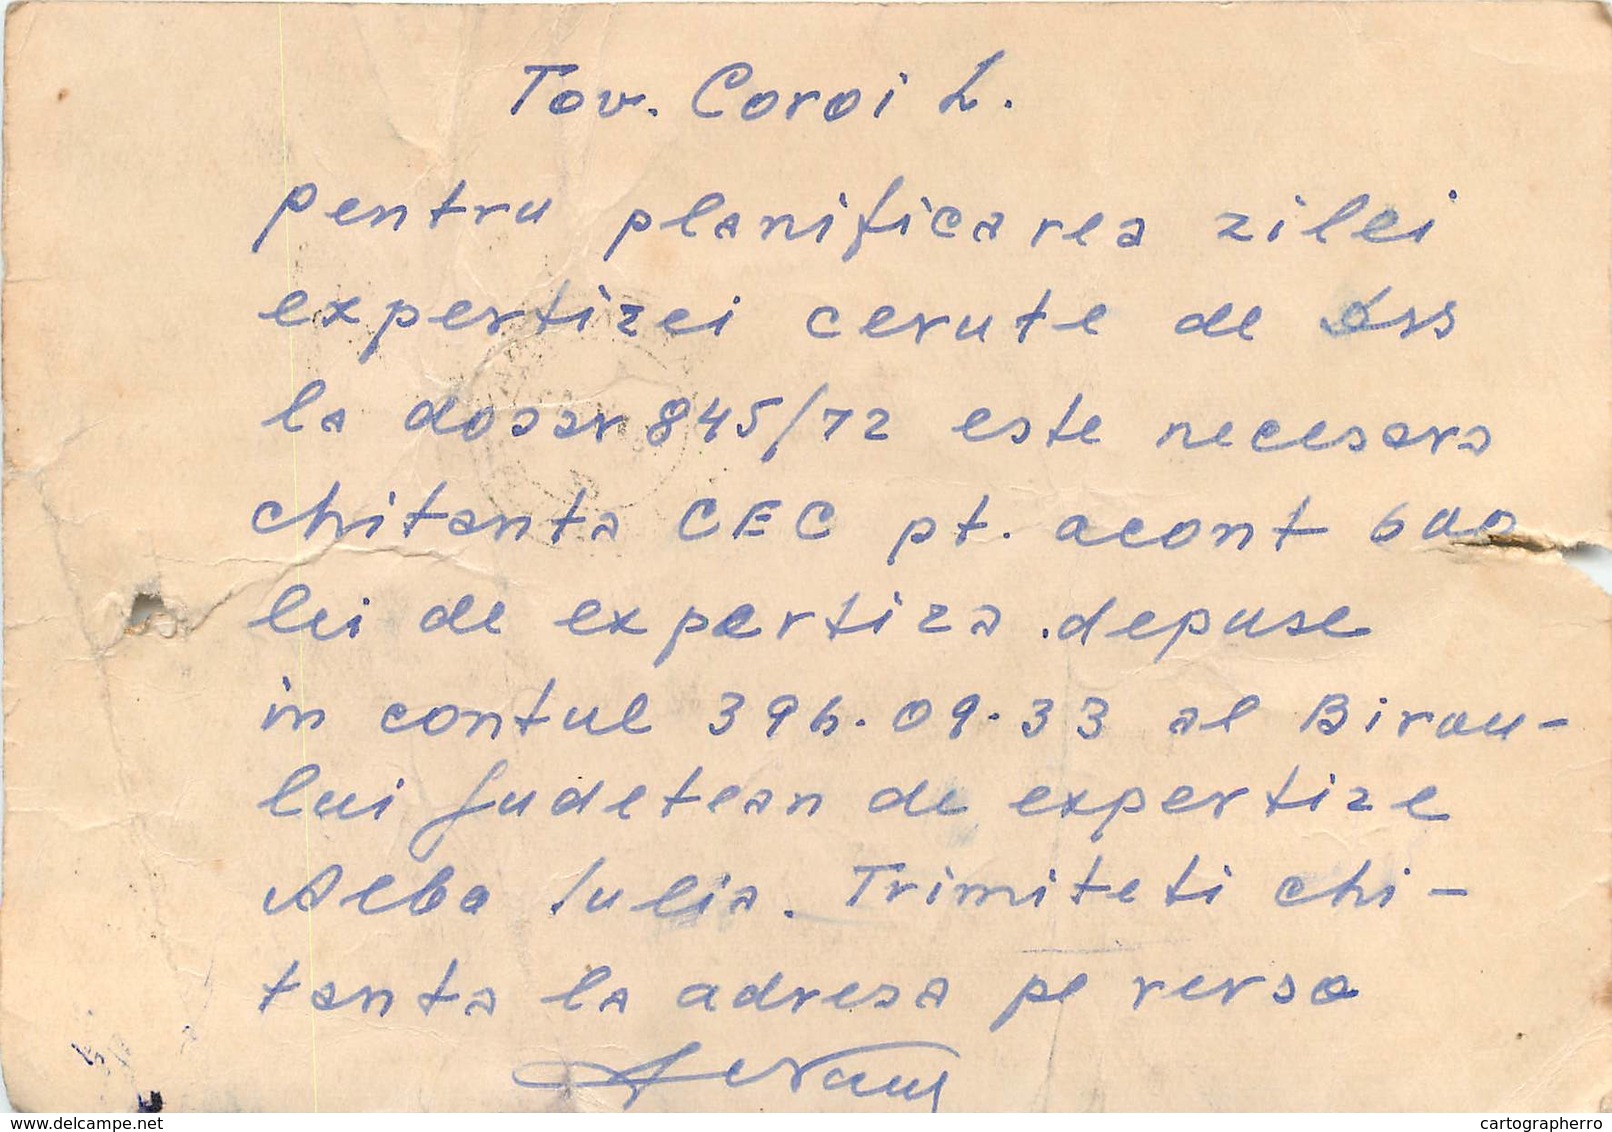 Tov. Coroi L.
pentru planificarea zilei
expertizei cerute de Dvs
la dosar 845/72 este necesara
chitanta CEC pt. acont 600
lei de expertiza depuse
in contul 396.09.33 al Birou-
lui Judetean de expertize
Alba Iulia. Trimiteti chi-
tanta la adresa pe verso
www.delcampe.net
cartographerro